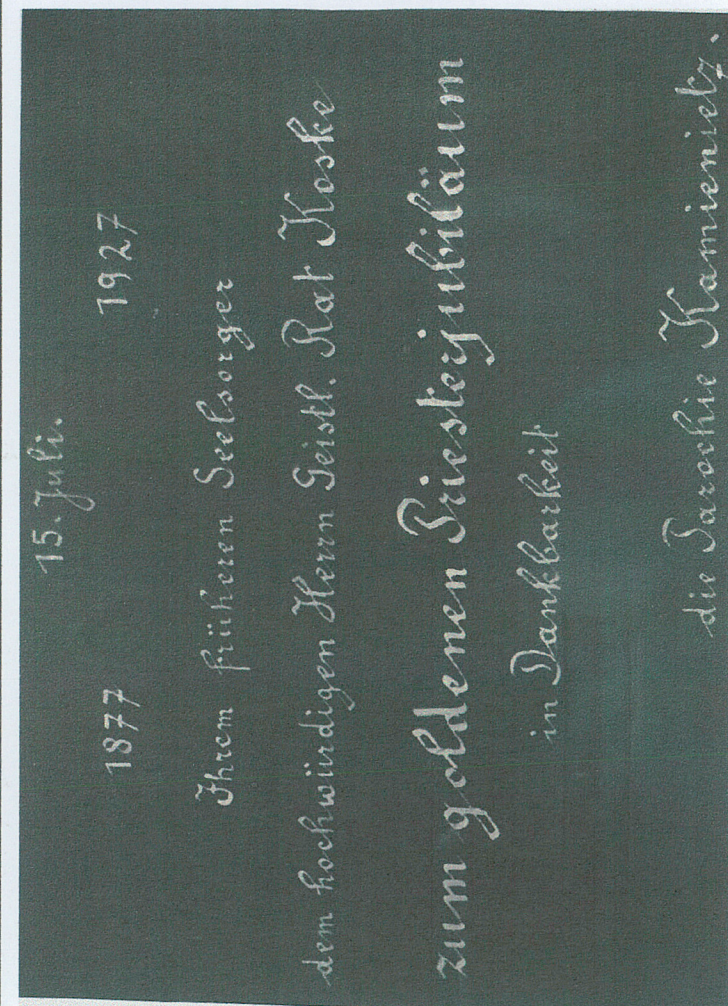 15. Juli.
1877 1927
Ihrem früheren Seelsorger
dem hochwürdigen Herrn Geistl. Rat Koske
zum goldenen Priesterjubiläum
in Dankbarkeit
die Parochie Kamienietz.